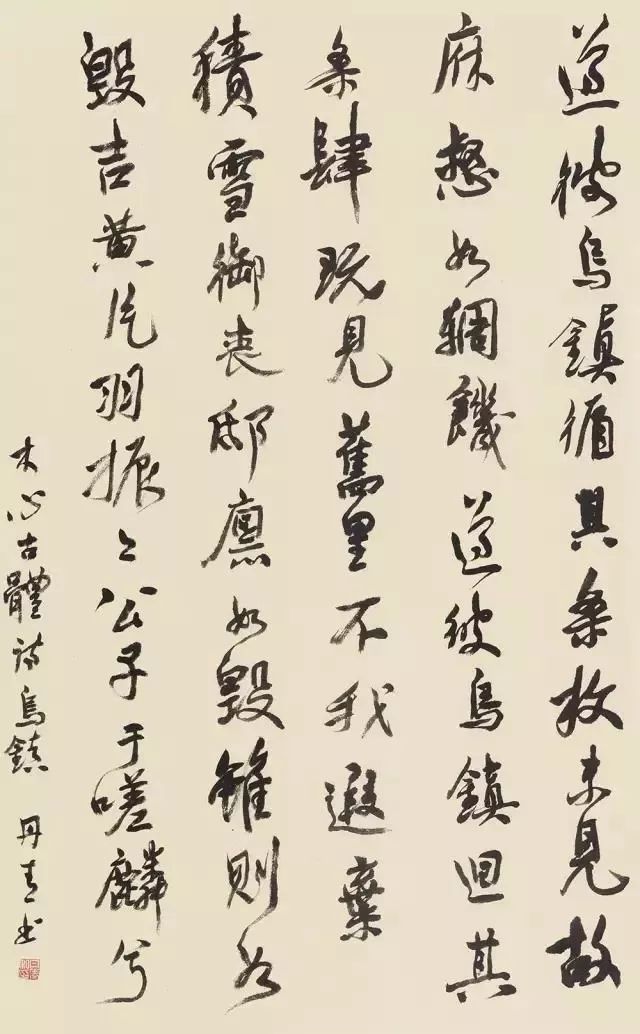 遵彼烏鎮循其条枚未見故
麻惄如輖饑遵彼烏鎮迴其
条肄既見舊里不我遐棄
積雪御丧邸廪如毀雖則如
毀吉黃片羽振々公子于嗟麟兮
木心古體詩烏鎮 丹青书